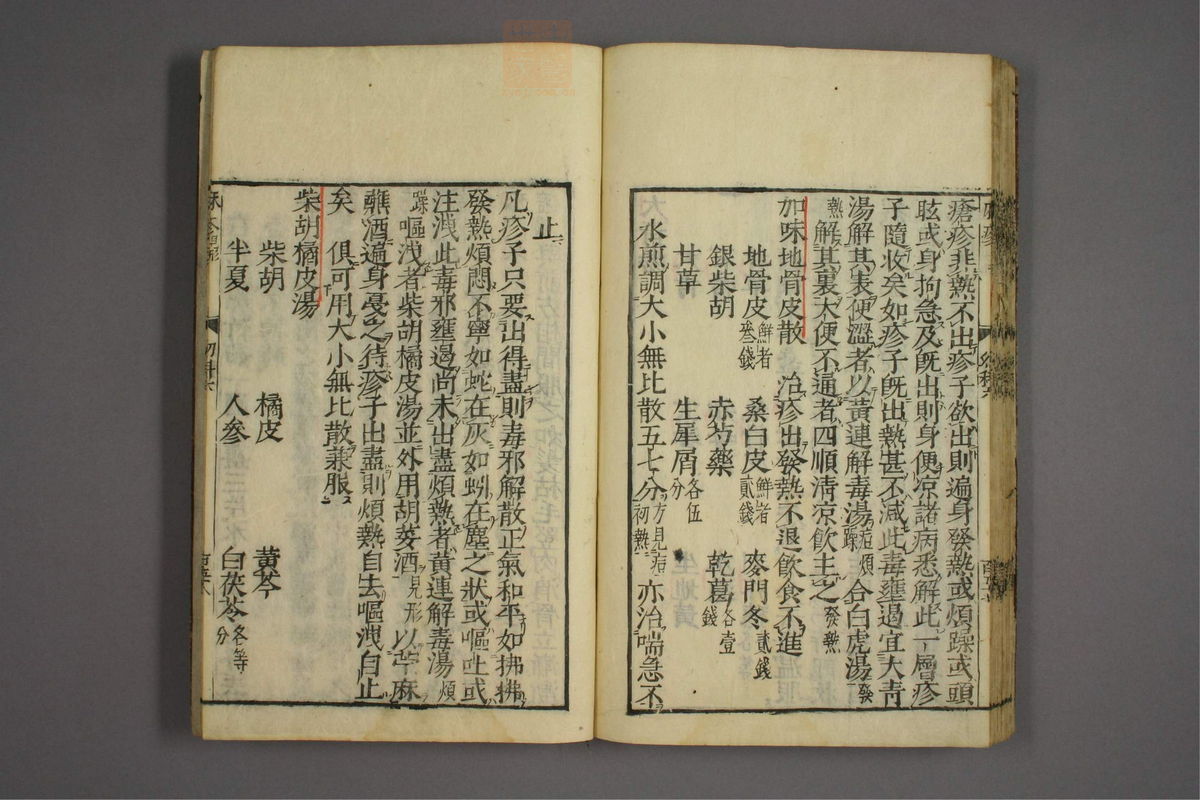 瘡疹非熱不出疹子欲出則遍身發熱或煩躁或頭
眩或身拘急及既出則身便凉諸病悉解此一層疹
子隨收矣如疹子既出熱甚不減此毒壅遏宜大青
湯解其表便澀者以黃連解毒湯痘煩躁合白虎湯發
熱解其裏大便不通者四順清凉飲主之發熱
加味地骨皮散 治疹出發熱不退飲食不進
地骨皮鮮者叄錢 桑白皮鮮者貳錢 麥門冬貳錢
銀柴胡 赤芍藥 乾葛各壹錢
甘草 生犀屑各伍分
水煎調大小無比散五七分方見痘初熱亦治喘急不
止
凡疹子只要出得盡則毒邪解散正氣和平如拂拂
發熱煩悶不寧如蛇在灰如蚓在塵之狀或嘔吐或
注洩此毒邪壅遏尚未出盡煩熱者黃連解毒湯煩
躁嘔洩者柴胡橘皮湯並外用胡荽酒見形以苧麻
蘸酒遍身戞之待疹子出盡則煩熱自去嘔洩自止
矣 俱可用大小無比散兼服
柴胡橘皮湯
柴胡 橘皮 黃芩
半夏 人參 白茯苓各等分